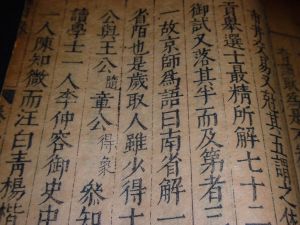 又 其五 之
貢舉選士最精所解七十二
御試又落其半而及第者三
一故京師爲語曰南省解一
省陌也是歲取人雖少得十
公與王公隨章公得象叅知
讀學士一人李仲容御史中
人陳知微而汪白青楊楷